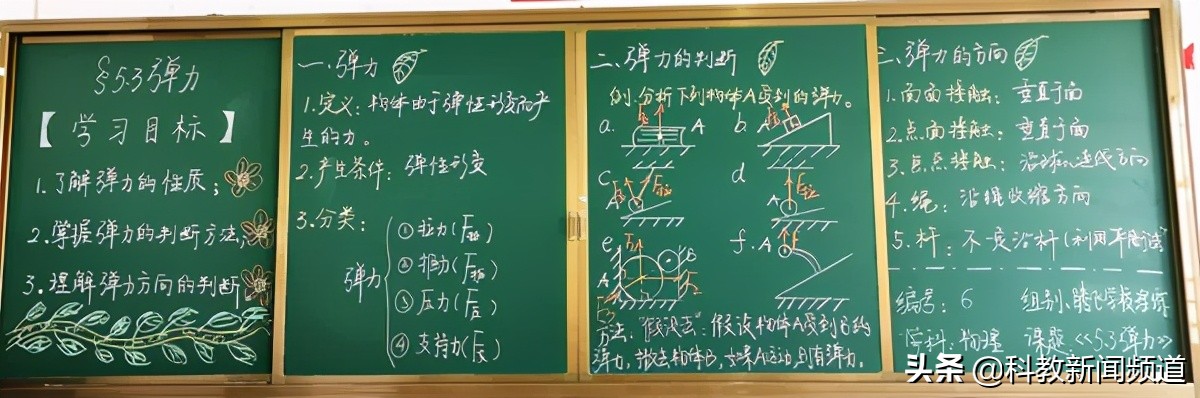 §5.3弹力
【学习目标】
1.了解弹力的性质；
2.掌握弹力的判断方法；
3.理解弹力方向的判断
一、弹力
1.定义：物体由于弹性形变而产
生的力。
2.产生条件：弹性形变
3.分类：
弹力
①拉力(F拉)
②推力(F推)
③压力(F压)
④支持力(F支)
二、弹力的判断
例：分析下列物体A受到的弹力。
a. A
b. A
c. A
d A
e. A B
f. A F
方法："假设法"：假设物体A受到B的
弹力，撤去物体B，如果A运动，则有弹力。
三、弹力的方向
1.面面接触：垂直于面
2.点面接触：垂直于面
3.点点接触：沿球心连线方向
4.绳：沿绳收缩方向
5.杆：不一定沿杆(利用平衡法)
编号：6 组别：腾飞学校
学科：物理 课题：《5.3弹力》
头条 @科教新闻频道